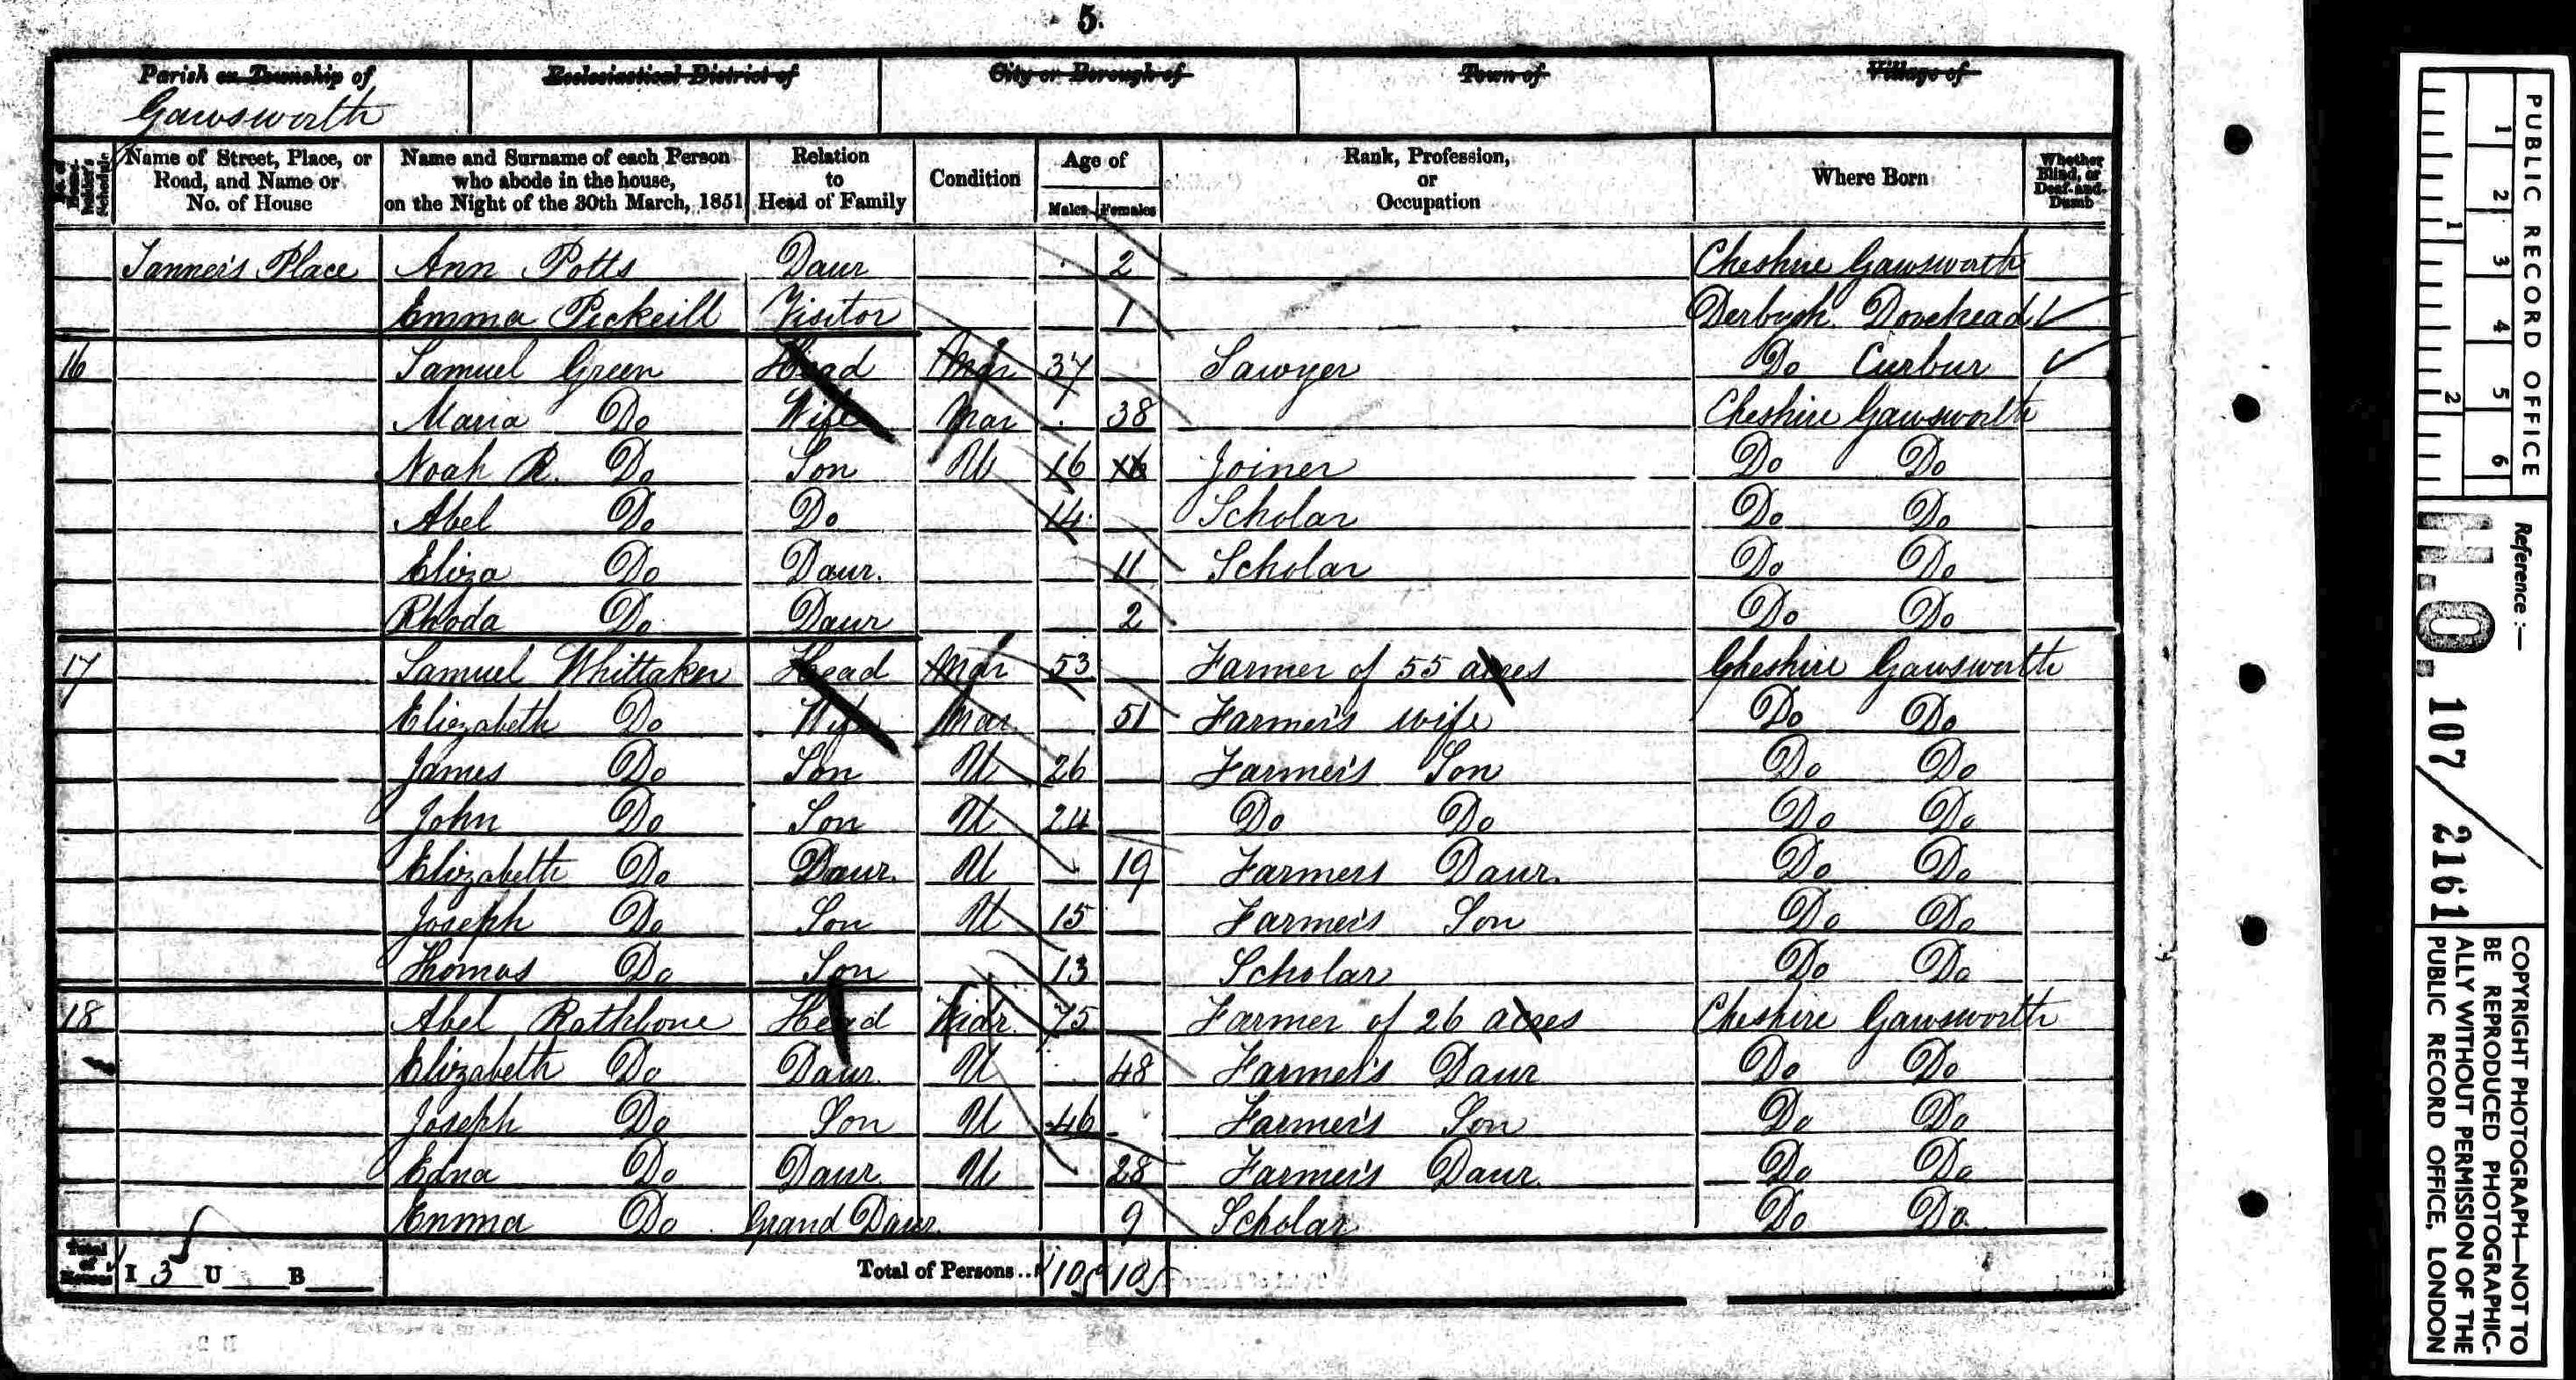 5.
Parish or Township of
Gawsworth
Ecclesiastical District of
City or Borough of
Town of
Village of
No. of House-holder's Schedule
Name of Street, Place, or Road, and Name or No. of House
Name and Surname of each Person who abode in the house, on the Night of the 30th March, 1851
Relation to Head of Family
Condition
Age of
Males Females
Rank, Profession, or Occupation
Where Born
Whether Blind, or Deaf-and-Dumb
Tanner's Place Ann Potts Daur 2 Cheshire Gawsworth
Emma Pickrill Visitor 1 Derbysh. Dovehead
16 Samuel Green Head Mar 37 Sawyer Do Curbur
Maria Do Wife Mar 38 Cheshire Gawsworth
Noah R. Do Son U 16 16 Joiner Do Do
Abel Do Do 14 Scholar Do Do
Eliza Do Daur. 11 Scholar Do Do
Rhoda Do Daur 2 Do Do
17 Samuel Whittaker Head Mar 53 Farmer of 55 acres Cheshire Gawsworth
Elizabeth Do Wife Mar 51 Farmer's wife Do Do
James Do Son U 26 Farmer's Son Do Do
John Do Son U 24 Do Do Do Do
Elizabeth Do Daur. U 19 Farmers Daur. Do Do
Joseph Do Son U 15 Farmer's Son Do Do
Thomas Do Son 13 Scholar Do Do
18 Abel Rathbone Head Widr. 75 Farmer of 26 acres Cheshire Gawsworth
Elizabeth Do Daur. U 48 Farmer's Daur Do Do
Joseph Do Son U 46 Farmer's Son Do Do
Edna Do Daur. U 28 Farmer's Daur. Do Do
Emma Do Grand Daur. 9 Scholar Do Do
Total of Houses I 3 U B Total of Persons... 10 10
PUBLIC RECORD OFFICE
1 2 3 4 5 6
1 2
Reference:—
H.O. 107/2161
COPYRIGHT PHOTOGRAPH—NOT TO
BE REPRODUCED PHOTOGRAPHIC-
ALLY WITHOUT PERMISSION OF THE
PUBLIC RECORD OFFICE, LONDON